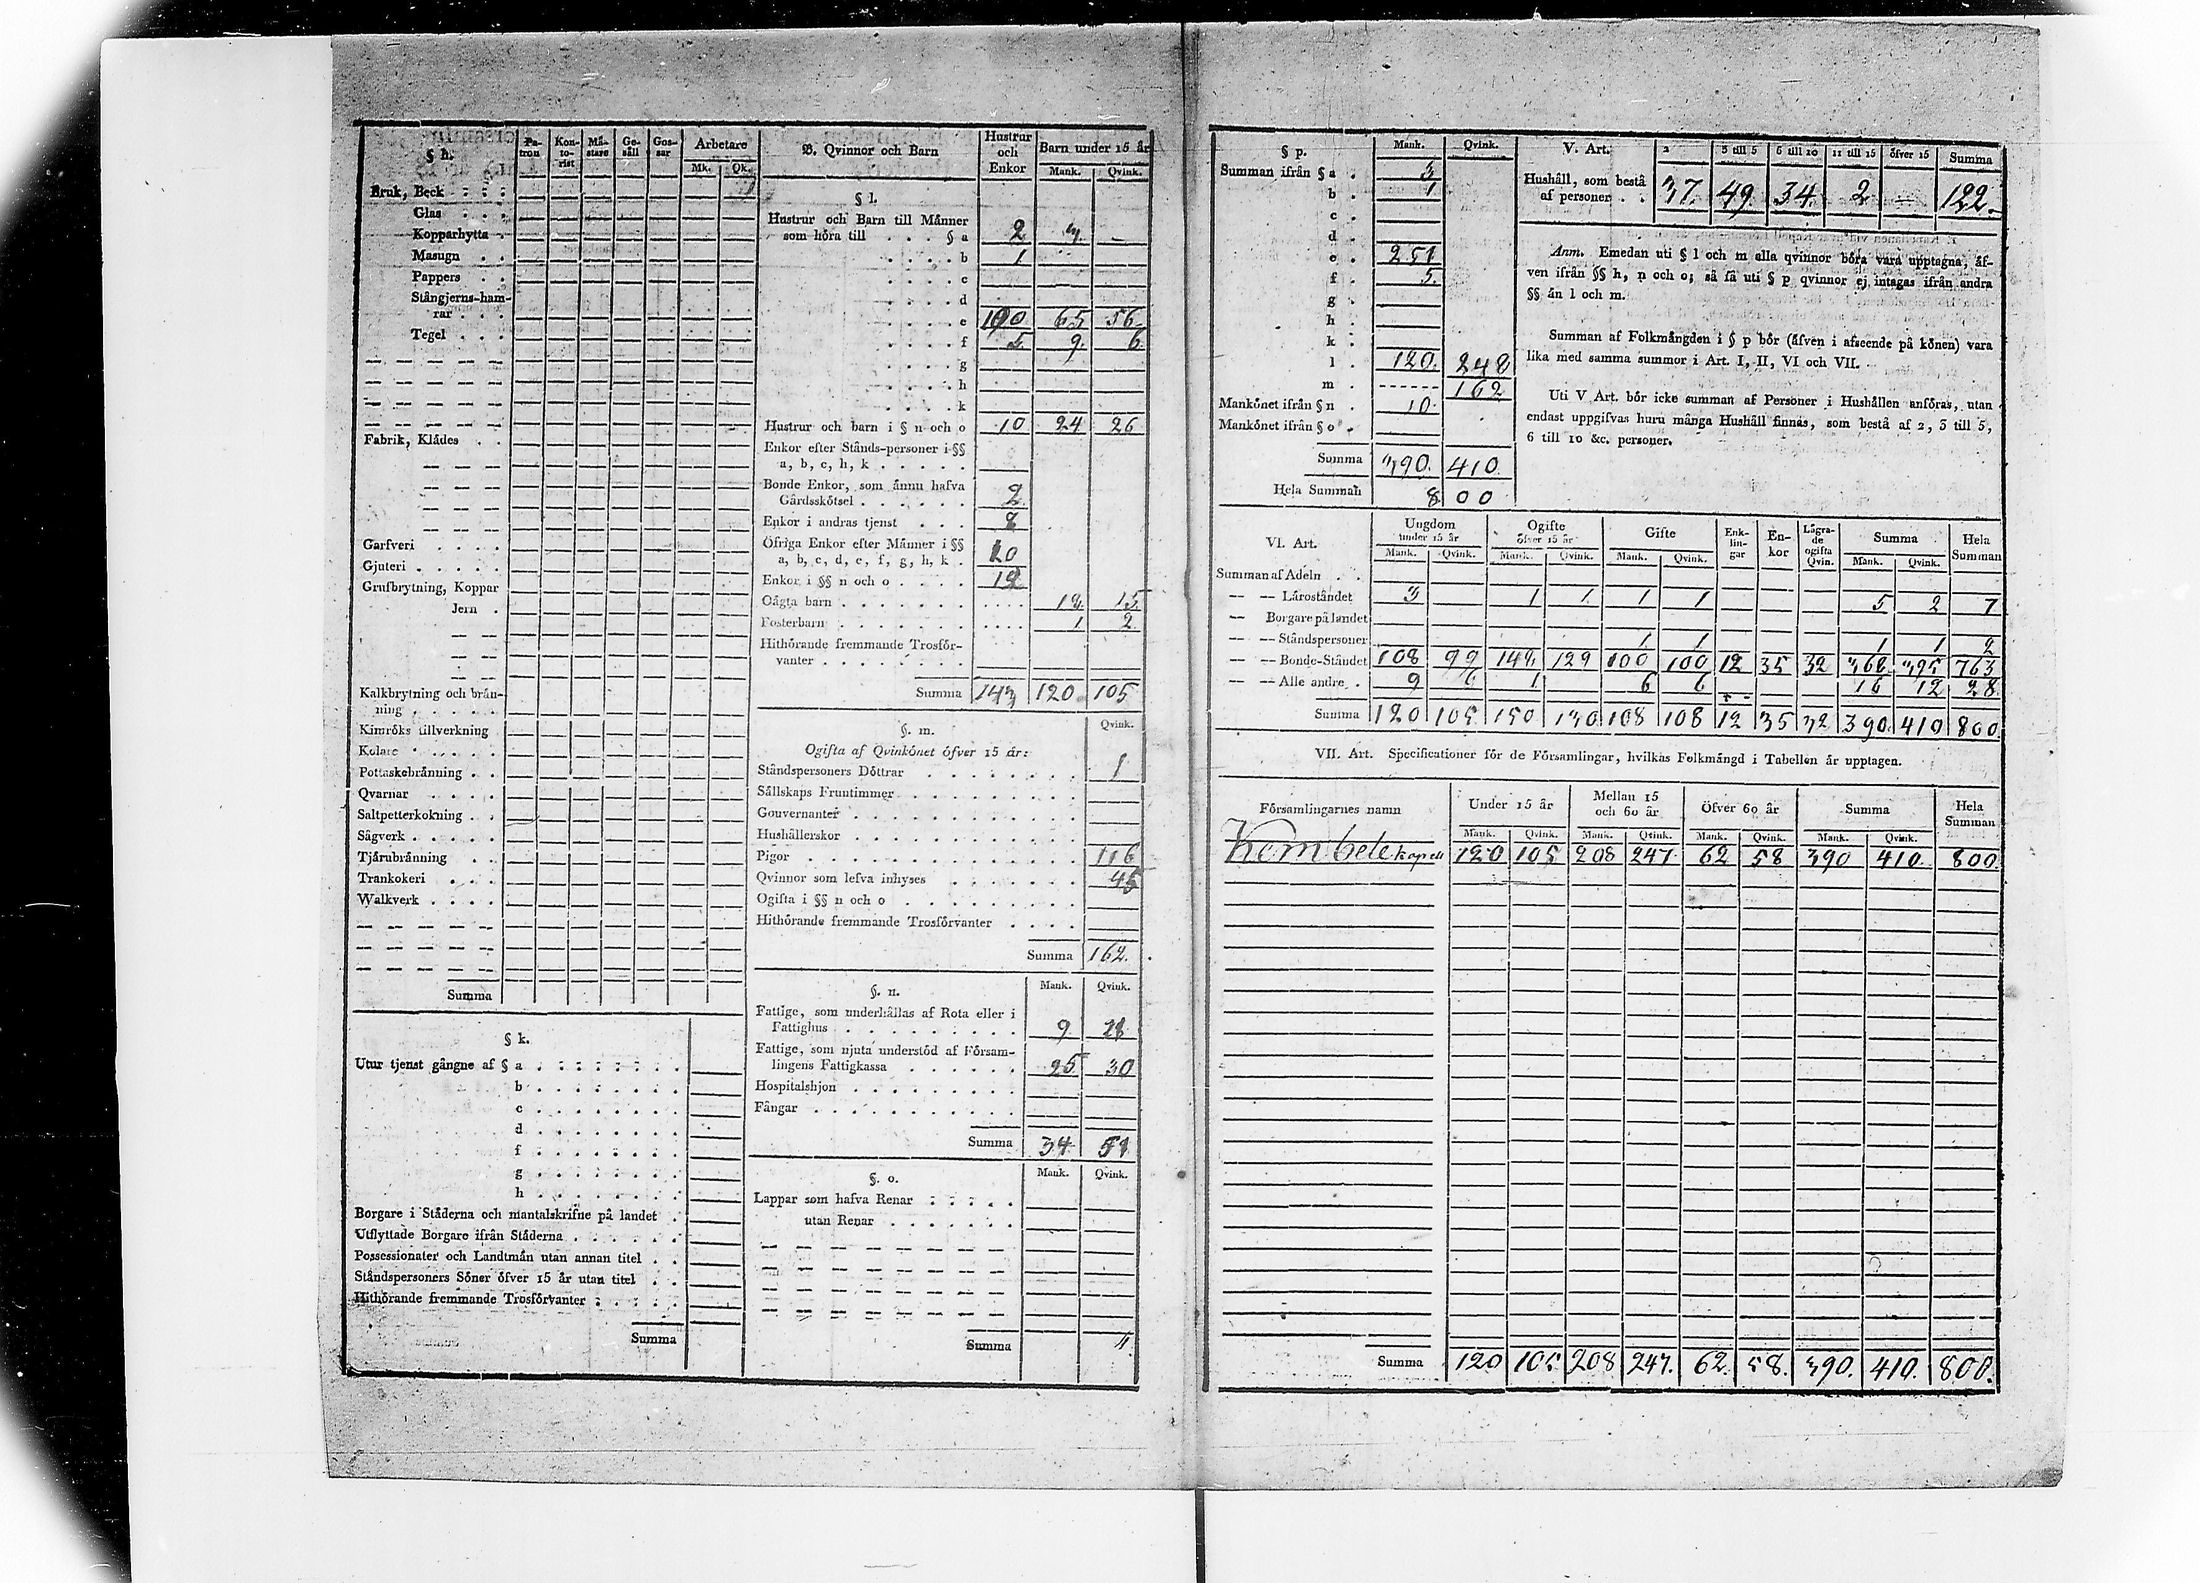 § h.
Pa-tron Kon-to-rist Mä-stare Ge-säll Gos-sar Arbetare
Mk. Qk.
Bruk, Beck . . .
Glas . . .
Kopparhytta .
Masugn . .
Pappers . .
Stångjerns-ham-
rar . . .
Tegel . . .
Fabrik, Klädes . .
Garfveri . . . .
Gjuteri . . . . .
Grufbrytning, Koppar
Jern .
Kalkbrytning och brän-
ning . . . . .
Kimröks tillverkning
Kolare . . . . .
Pottaskebränning . .
Qvarnar . . . .
Saltpetterkokning . .
Sågverk . . . . .
Tjärubränning . .
Trankokeri . . .
Walkverk . . . .
Summa
§ k.
Utur tjenst gångne af § a . . . . . . .
b . . . . . . .
c . . . . . . .
d . . . . . . .
f . . . . . . .
g . . . . . . .
h . . . . . . .
Borgare i Städerna och mantalskrifne på landet .
Utflyttade Borgare ifrån Städerna . . . . . .
Possessionater och Landtmän utan annan titel . .
Ståndspersoners Söner öfver 15 år utan titel . .
Hithörande fremmande Trosförvanter . . . . .
Summa
B. Qvinnor och Barn
Hustrur och Enkor Barn under 15 år
Mank. Qvink.
§ l.
Hustrur och Barn till Männer
som höra till . . . § a 2 3 –
. . . . b 1
. . . . c
. . . . d
. . . . e 100 65 56
. . . . f 5 9 6
. . . . g
. . . . h
. . . . k
Hustrur och barn i § n och o 10 24 26
Enkor efter Stånds-personer i §§
a, b, c, h, k . . . . .
Bonde Enkor, som ännu hafva
Gårdsskötsel . . . . . . 2
Enkor i andras tjenst . . . 8
Öfriga Enkor efter Männer i §§
a, b, c, d, e, f, g, h, k .
Enkor i §§ n och o . . . .
Oägta barn . . . . . . . . . . . 18 15
Fosterbarn . . . . . . . . . . . 1 2
Hithörande fremmande Trosför-
vanter . . . . . . . .
Summa 143 120 105
§. m.
Qvink.
Ogifta af Qvinkönet öfver 15 år:
Ståndspersoners Döttrar . . . . . . . . 1
Sällskaps Fruntimmer . . . . . . . . .
Gouvernanter . . . . . . . . . . .
Hushållerskor . . . . . . . . . . .
Pigor . . . . . . . . . . . . 116
Qvinnor som lefva inhyses . . . . . . . 45
Ogifta i §§ n och o . . . . . . . . .
Hithörande fremmande Trosförvanter . . . .
Summa 162.
§. n.
Mank. Qvink.
Fattige, som underhållas af Rota eller i
Fattighus . . . . . . . . . 9
Fattige, som njuta understöd af Försam-
lingens Fattigkassa . . . . . . 25 30
Hospitalshjon . . . . . . . . .
Fångar . . . . . . . . . . .
Summa 34 51
§. o.
Mank. Qvink.
Lappar som hafva Renar . . . . .
utan Renar . . . . . . .
Summa
§ p.
Mank. Qvink.
Summan ifrån § a . 3
b . 1
c .
d .
e . 251
f . 5.
g .
h .
k .
l . 120. 248
m . ------ 162
Mankönet ifrån § n . 10.
Mankönet ifrån § o .
Summa 390. 410.
Hela Summan 800
V. Art. 2 3 till 5 6 till 10 11 till 15 öfver 15 Summa
Hushåll, som bestå
af personer . . 37. 49. 34. 2 – 122.
Anm. Emedan uti § l och m alla qvinnor böra vara upptagna, äf-
ven ifrån §§ h, n och o; så få uti § p qvinnor ej intagas ifrån andra
§§ än l och m.
Summan af Folkmängden i § p bör (äfven i afseende på könen) vara
lika med samma summor i Art. I, II, VI och VII.
Uti V Art. bör icke summan af Personer i Hushållen anföras, utan
endast uppgifvas huru många Hushåll finnas, som bestå af 2, 3 till 5,
6 till 10 &c. personer.
VI. Art. Ungdom under 15 år Ogifte öfver 15 år Gifte Enk-lin-gar En-kor Lägra-de ogifta Qvin. Summa Hela Summan
Mank. Qvink. Mank. Qvink. Mank. Qvink. Mank. Qvink.
Summan af Adeln . .
— — Läroståndet 3 1 1. 1 1 5 2 7
— Borgare på landet
— — Ståndspersoner 1 1 1 1 2
— — Bonde-Ståndet 108 99 148 129 100 100 12 35 32 368 395 763
— — Alle andre . 9 6 1 6 6 16 12 28
Summa 120 105 150 130 108 108 12 35 32 390. 410 800.
VII. Art. Specificationer för de Församlingar, hvilkas Folkmängd i Tabellen är upptagen.
Församlingarnes namn Under 15 år Mellan 15 och 60 år Öfver 60 år Summa Hela Summan
Mank. Qvink. Mank. Qvink. Mank. Qvink. Mank. Qvink.
Kumbele kapell 120 105 208 247. 62 58 390 410. 800.
Summa 120 105 208 247. 62. 58. 390. 410. 800.